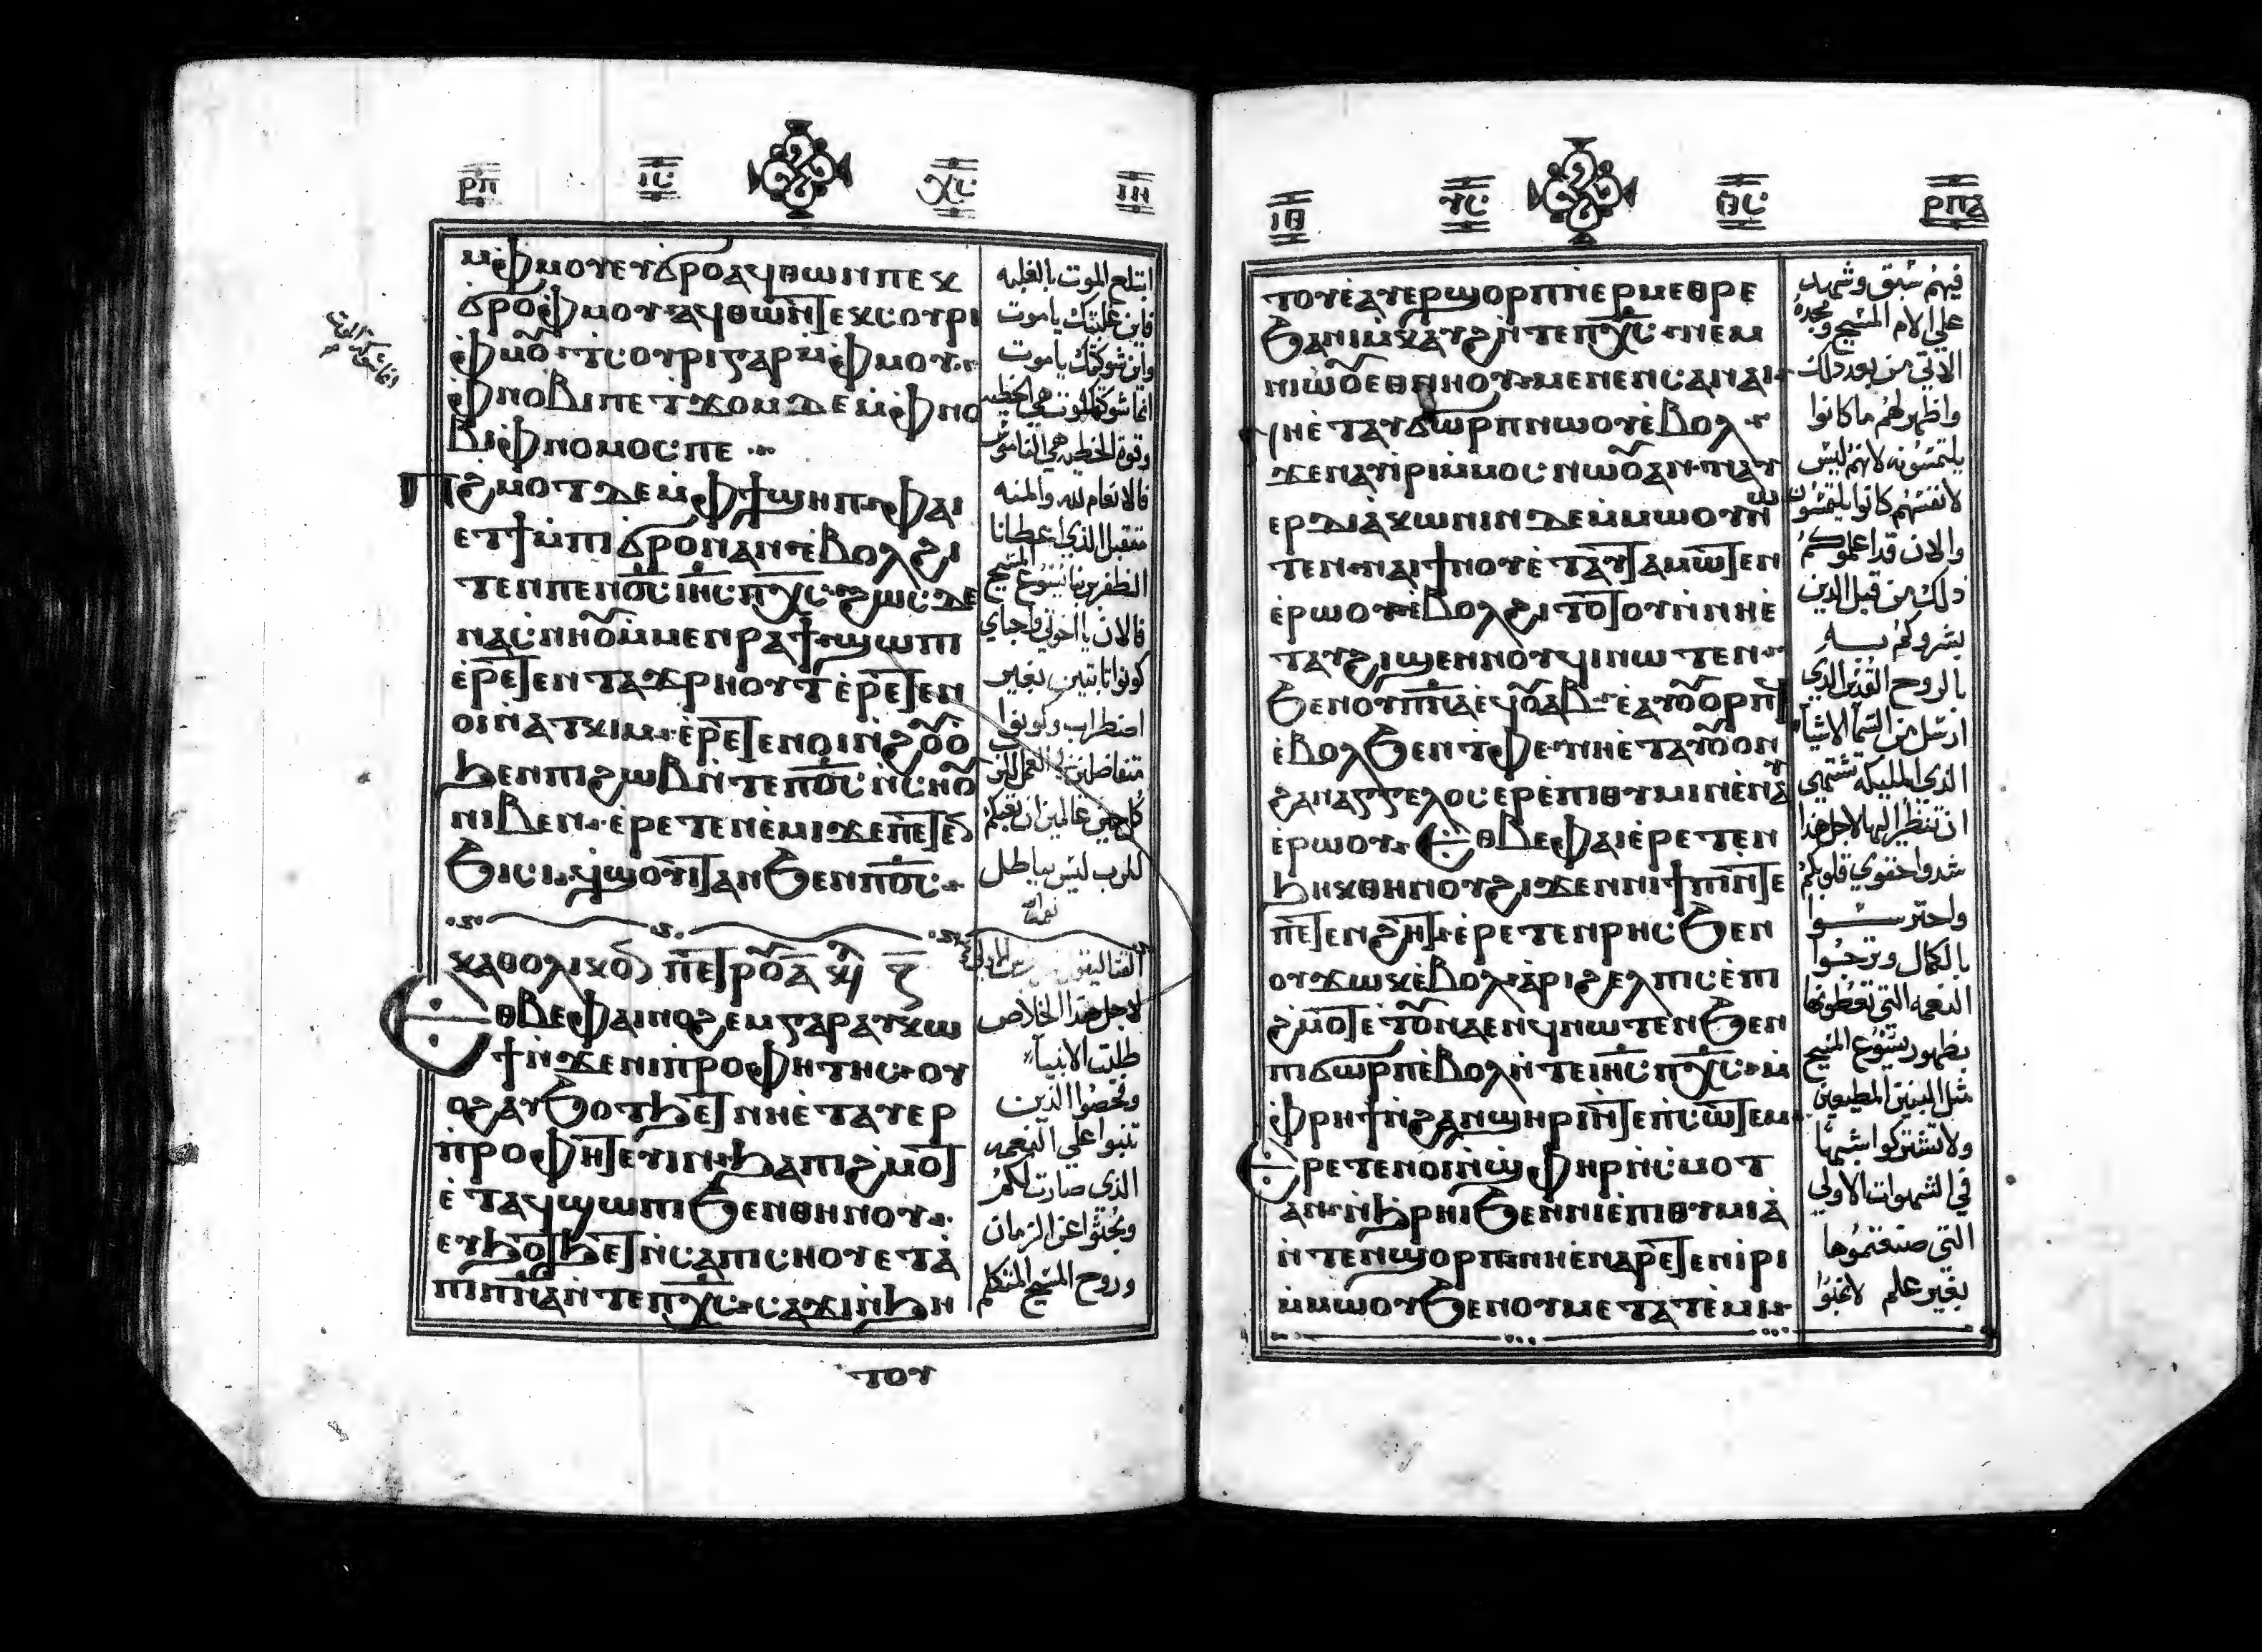 ⲣⲡ ⲓⲥ ⲭⲥ ⲓⲏ
ⲙ̀ⲫⲙⲟⲩ ⲉⲩϭⲣⲟ ⲁϥⲑⲱⲛ ⲡⲉⲕ
ϭⲣⲟ ⲫⲙⲟⲩ ⲁϥⲑⲱⲛ ⲧⲉⲕⲥⲟⲩⲣⲓ
ⲫⲙⲟⲩ ϯⲥⲟⲩⲣⲓ ⲅⲁⲣ ⲙ̀ⲫⲙⲟⲩ
ⲫⲛⲟⲃⲓ ⲡⲉ ⲧϫⲟⲙ ⲇⲉ ⲙ̀ⲫⲛⲟ
ⲃⲓ ⲫⲛⲟⲙⲟⲥ ⲡⲉ
ⲡϩⲙⲟⲧ ⲇⲉ ⲙ̀ⲫϯ ϣⲏⲡ ⲫⲁⲓ
ⲉⲧϯ ⲙ̀ⲡⲓϭⲣⲟ ⲛⲁⲛ ⲉ̀ⲃⲟⲗϩⲓ
ⲧⲉⲛ ⲡⲉⲛⲟ̅ⲥ̅ ⲓⲏ̅ⲥ̅ ⲡⲭ̅ⲥ̅ ϩⲱⲥⲇⲉ
ⲛⲁⲥⲛⲏⲟⲩ ⲙ̀ⲙⲉⲛⲣⲁϯ ϣⲱⲡⲓ
ⲉ̀ⲣⲉⲧⲉⲛⲧⲁϫⲣⲏⲟⲩⲧ ⲉ̀ⲣⲉⲧⲉⲛ
ⲟⲓ ⲛ̀ⲁⲧⲕⲓⲙ ⲉ̀ⲣⲉⲧⲉⲛⲟⲓ ⲛ̀ϩⲟⲩⲟ
ϧⲉⲛ ⲡⲓϩⲱⲃ ⲛ̀ⲧⲉ ⲡⲟ̅ⲥ̅ ⲛ̀ⲥⲏⲟⲩ
ⲛⲓⲃⲉⲛ ⲉ̀ⲣⲉⲧⲉⲛⲉ̀ⲙⲓ ϫⲉ ⲡⲉⲧⲉⲛ
ϧⲓⲥⲓ ϥϣⲟⲩⲓⲧ ⲁⲛ ϧⲉⲛ ⲡⲟ̅ⲥ̅
ⲕⲁⲑⲟⲗⲓⲕⲟⲛ ⲡⲉⲧⲣⲟⲩ ⲁ̅
ⲉⲑⲃⲉ ⲫⲁⲓ ⲛⲟϩⲉⲙ ⲅⲁⲣ ⲁⲩⲕⲱ
ϯ ⲛ̀ϫⲉ ⲛⲓⲡⲣⲟⲫⲏⲧⲏⲥ ⲟⲩ
ⲟϩ ⲁⲩϧⲟⲧϧⲉⲧ ⲛⲏⲉ̀ⲧⲁⲩⲉⲣ
ⲡⲣⲟⲫⲏⲧⲉⲩⲓⲛ ϧⲁ ⲡⲓϩⲙⲟⲧ
ⲉ̀ⲧⲁϥϣⲱⲡⲓ ϧⲉⲛ ⲑⲏⲛⲟⲩ
ⲉⲩϧⲟⲧϧⲉⲧ ⲛ̀ⲥⲁ ⲡⲓⲥⲏⲟⲩ ⲉⲧⲁ
ⲡⲓⲡ̅ⲛ̅ⲁ̅ ⲛ̀ⲧⲉ ⲡⲭ̅ⲥ̅ ⲥⲁϫⲓ ⲛ̀ϧⲏ
ⲧⲟⲩ
ابتلع الموت بالغلبه
فاين غلبتك ياموت
واين شوكتك ياموت
انما شوكة الموت هي الخطيه
وقوة الخطيه هي الناموس
فالانعام لله والمنه
متقبل الذي اعطانا
الظفر بربنا يسوع المسيح
فالان يا اخوتي واحباي
كونوا ثابتين بغير
اضطراب وكونوا
متفاضلين في العمل للرب
كل حين عالمين ان تعبكم
للرب ليس بباطل
لاجل هذا الخلاص
طلبت الانبيآ
وفحصوا الذين
تنبوا علي النعمه
الذي صارت لكم
وبحثوا عن الزمان
وروح المسيح المتكلم
ⲓⲑ ⲩⲥ ⲑⲥ ⲣⲡⲁ
ⲧⲟⲩ ⲉ̀ⲁⲩⲉⲣϣⲟⲣⲡ ⲛ̀ⲉⲣⲙⲉⲑⲣⲉ
ϧⲁ ⲛⲓⲙ̀ⲕⲁⲩϩ ⲛ̀ⲧⲉ ⲡⲭ̅ⲥ̅ ⲛⲉⲙ
ⲛⲓⲱⲟⲩ ⲉⲑⲛⲏⲟⲩ ⲙⲉⲛⲉⲛⲥⲁ ⲛⲁⲓ
ⲛⲏⲉ̀ⲧⲁⲩϭⲱⲣⲡ ⲛⲱⲟⲩ ⲉ̀ⲃⲟⲗ
ϫⲉ ⲛⲁⲩⲓⲣⲓ ⲙ̀ⲙⲟⲥ ⲛⲱⲟⲩ ⲁⲛ ⲛⲁⲩ
ⲉⲣⲇⲓⲁⲕⲱⲛⲓⲛ ⲇⲉ ⲙ̀ⲙⲱⲟⲩ ⲛⲱ
ⲧⲉⲛ ⲛⲁⲓ ϯⲛⲟⲩ ⲉ̀ⲧⲁⲩⲧⲁⲙⲱⲧⲉⲛ
ⲉ̀ⲣⲱⲟⲩ ⲉ̀ⲃⲟⲗϩⲓⲧⲟⲧⲟⲩ ⲛ̀ⲛⲏⲉ̀
ⲧⲁⲩϩⲓϣⲉⲛⲛⲟⲩϥⲓ ⲛⲱⲧⲉⲛ
ϧⲉⲛ ⲟⲩⲡ̅ⲛ̅ⲁ̅ ⲉϥⲟⲩⲁⲃ ⲉ̀ⲁⲩⲟⲩⲟⲣⲡϥ
ⲉ̀ⲃⲟⲗϧⲉⲛ ⲧⲫⲉ ⲛⲏⲉ̀ⲧⲁ ⲟⲩⲟⲛ
ϩⲁⲛⲁⲅⲅⲉⲗⲟⲥ ⲉⲣⲉ̀ⲡⲓⲑⲩⲙⲓⲛ ⲉ̀ⲛⲁⲩ
ⲉ̀ⲣⲱⲟⲩ ⲉⲑⲃⲉ ⲫⲁⲓ ⲉ̀ⲣⲉⲧⲉⲛ
ϧⲏⲕ ⲑⲏⲛⲟⲩ ϩⲓϫⲉⲛ ⲛⲓϯⲡⲓ ⲛ̀ⲧⲉ
ⲡⲉⲧⲉⲛϩⲏⲧ ⲉ̀ⲣⲉⲧⲉⲛⲣⲏⲥ ϧⲉⲛ
ⲟⲩϫⲱⲕ ⲉ̀ⲃⲟⲗ ⲁⲣⲓϩⲉⲗⲡⲓⲥ ⲉ̀ⲡⲓ
ϩⲙⲟⲧ ⲉⲧⲟⲩⲛⲁⲉⲛϥ ⲛⲱⲧⲉⲛ ϧⲉⲛ
ⲡⲓϭⲱⲣⲡ ⲉ̀ⲃⲟⲗ ⲛ̀ⲧⲉ ⲓⲏ̅ⲥ̅ ⲡⲭ̅ⲥ̅ ⲙ̀
ⲫⲣⲏϯ ⲛ̀ϩⲁⲛϣⲏⲣⲓ ⲛ̀ⲧⲉ ⲡⲥⲱⲧⲉⲙ
ⲉⲣⲉⲧⲉⲛⲟⲓ ⲛ̀ϣⲫⲏⲣ ⲛ̀ⲥⲙⲟⲧ
ⲁⲛ ⲛ̀ϧⲣⲏⲓ ϧⲉⲛ ⲛⲓⲉ̀ⲡⲓⲑⲩⲙⲓⲁ̀
ⲛ̀ⲧⲉⲛ ϣⲟⲣⲡ ⲛⲏⲉ̀ⲛⲁⲣⲉⲧⲉⲛⲓ̀ⲣⲓ
ⲙ̀ⲙⲱⲟⲩ ϧⲉⲛ ⲟⲩⲙⲉⲧⲁⲧⲉ̀ⲙⲓ
فيهم سبق وشهد
علي الام المسيح ومجده
الاتي من بعد ذلك
واظهر لهم ما كانوا
يلتمسونه لانهم ليس
لانفسهم كانوا يلتمسون
والان قد اعلموكم
ذلك من قبل الذين
بشروكم به
بالروح القدس الذي
ارسل من السمآ الاشيآ
الذي الملايكه تشتهي
ان تنظر اليها لاجل هذا
شدوا حقوي قلوبكم
واحترسوا
بالكمال وترجوا
النعمه التي تعطونها
بظهور يسوع المسيح
مثل البنين المطيعين
ولا تشتركوا
في الشهوات الاولي
التي صنعتموها
بغير علم